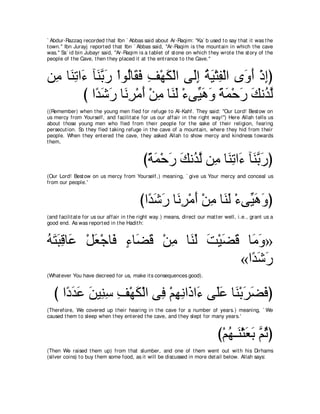 `Abdur-Razzaq recorded that Ibn `Abbas said about Ar-Raqim: "Ka`b used to say that it was the
town." Ibn Jurayj reported that Ibn `Abbas said, "Ar-Raqim is the mountain in which the cave
was." Sa`id bin Jubayr said, "Ar-Raqim is a tablet of stone on which they wrote the story of the
people of the Cave, then they placed it at the entrance to the Cave."
إِذْ أَوَى الْفِتْيَةُ إِلَى الْكَهْفِ فَقَالُواْ رَبَّنَآ ءَاتِنَا مِن
لَّدُنكَ رَحْمَةً وَهَيِّىءْ لَنَا مِنْ أَمْرِنَا رَشَدًا )
((Remember) when the young men fled for refuge to Al-Kahf. They said: "Our Lord! Bestow on
us mercy from Yourself, and facilitate for us our affair in the right way!") Here Allah tells us
about those young men who fled from their people for the sake of their religion, fearing
persecution. So they fled taking refuge in the cave of a mountain, where they hid from their
people. When they entered the cave, they asked Allah to show mercy and kindness towards
them,
(رَبَّنَآ ءَاتِنَا مِن لَّدُنكَ رَحْمَةً)
(Our Lord! Bestow on us mercy from Yourself,) meaning, `give us Your mercy and conceal us
from our people.'
(وَهَيِّىءْ لَنَا مِنْ أَمْرِنَا رَشَدًا)
(and facilitate for us our affair in the right way.) means, direct our matter well, i.e., grant us a
good end. As was reported in the Hadith:
«وَمَا قَضَيْتَ لَنَا مِنْ قَضَاءٍ فَاجْعَلْ عَاقِبَتَهُ
رَشَدًا»
(Whatever You have decreed for us, make its consequences good).
(فَضَرَبْنَا عَلَى ءَاذَانِهِمْ فِى الْكَهْفِ سِنِينَ عَدَدًا )
(Therefore, We covered up their hearing in the cave for a number of years.) meaning, `We
caused them to sleep when they entered the cave, and they slept for many years.'
(ثُمَّ بَعَثْنَـهُمْ)
(Then We raised them up) from that slumber, and one of them went out with his Dirhams
(silver coins) to buy them some food, as it will be discussed in more detail below. Allah says: